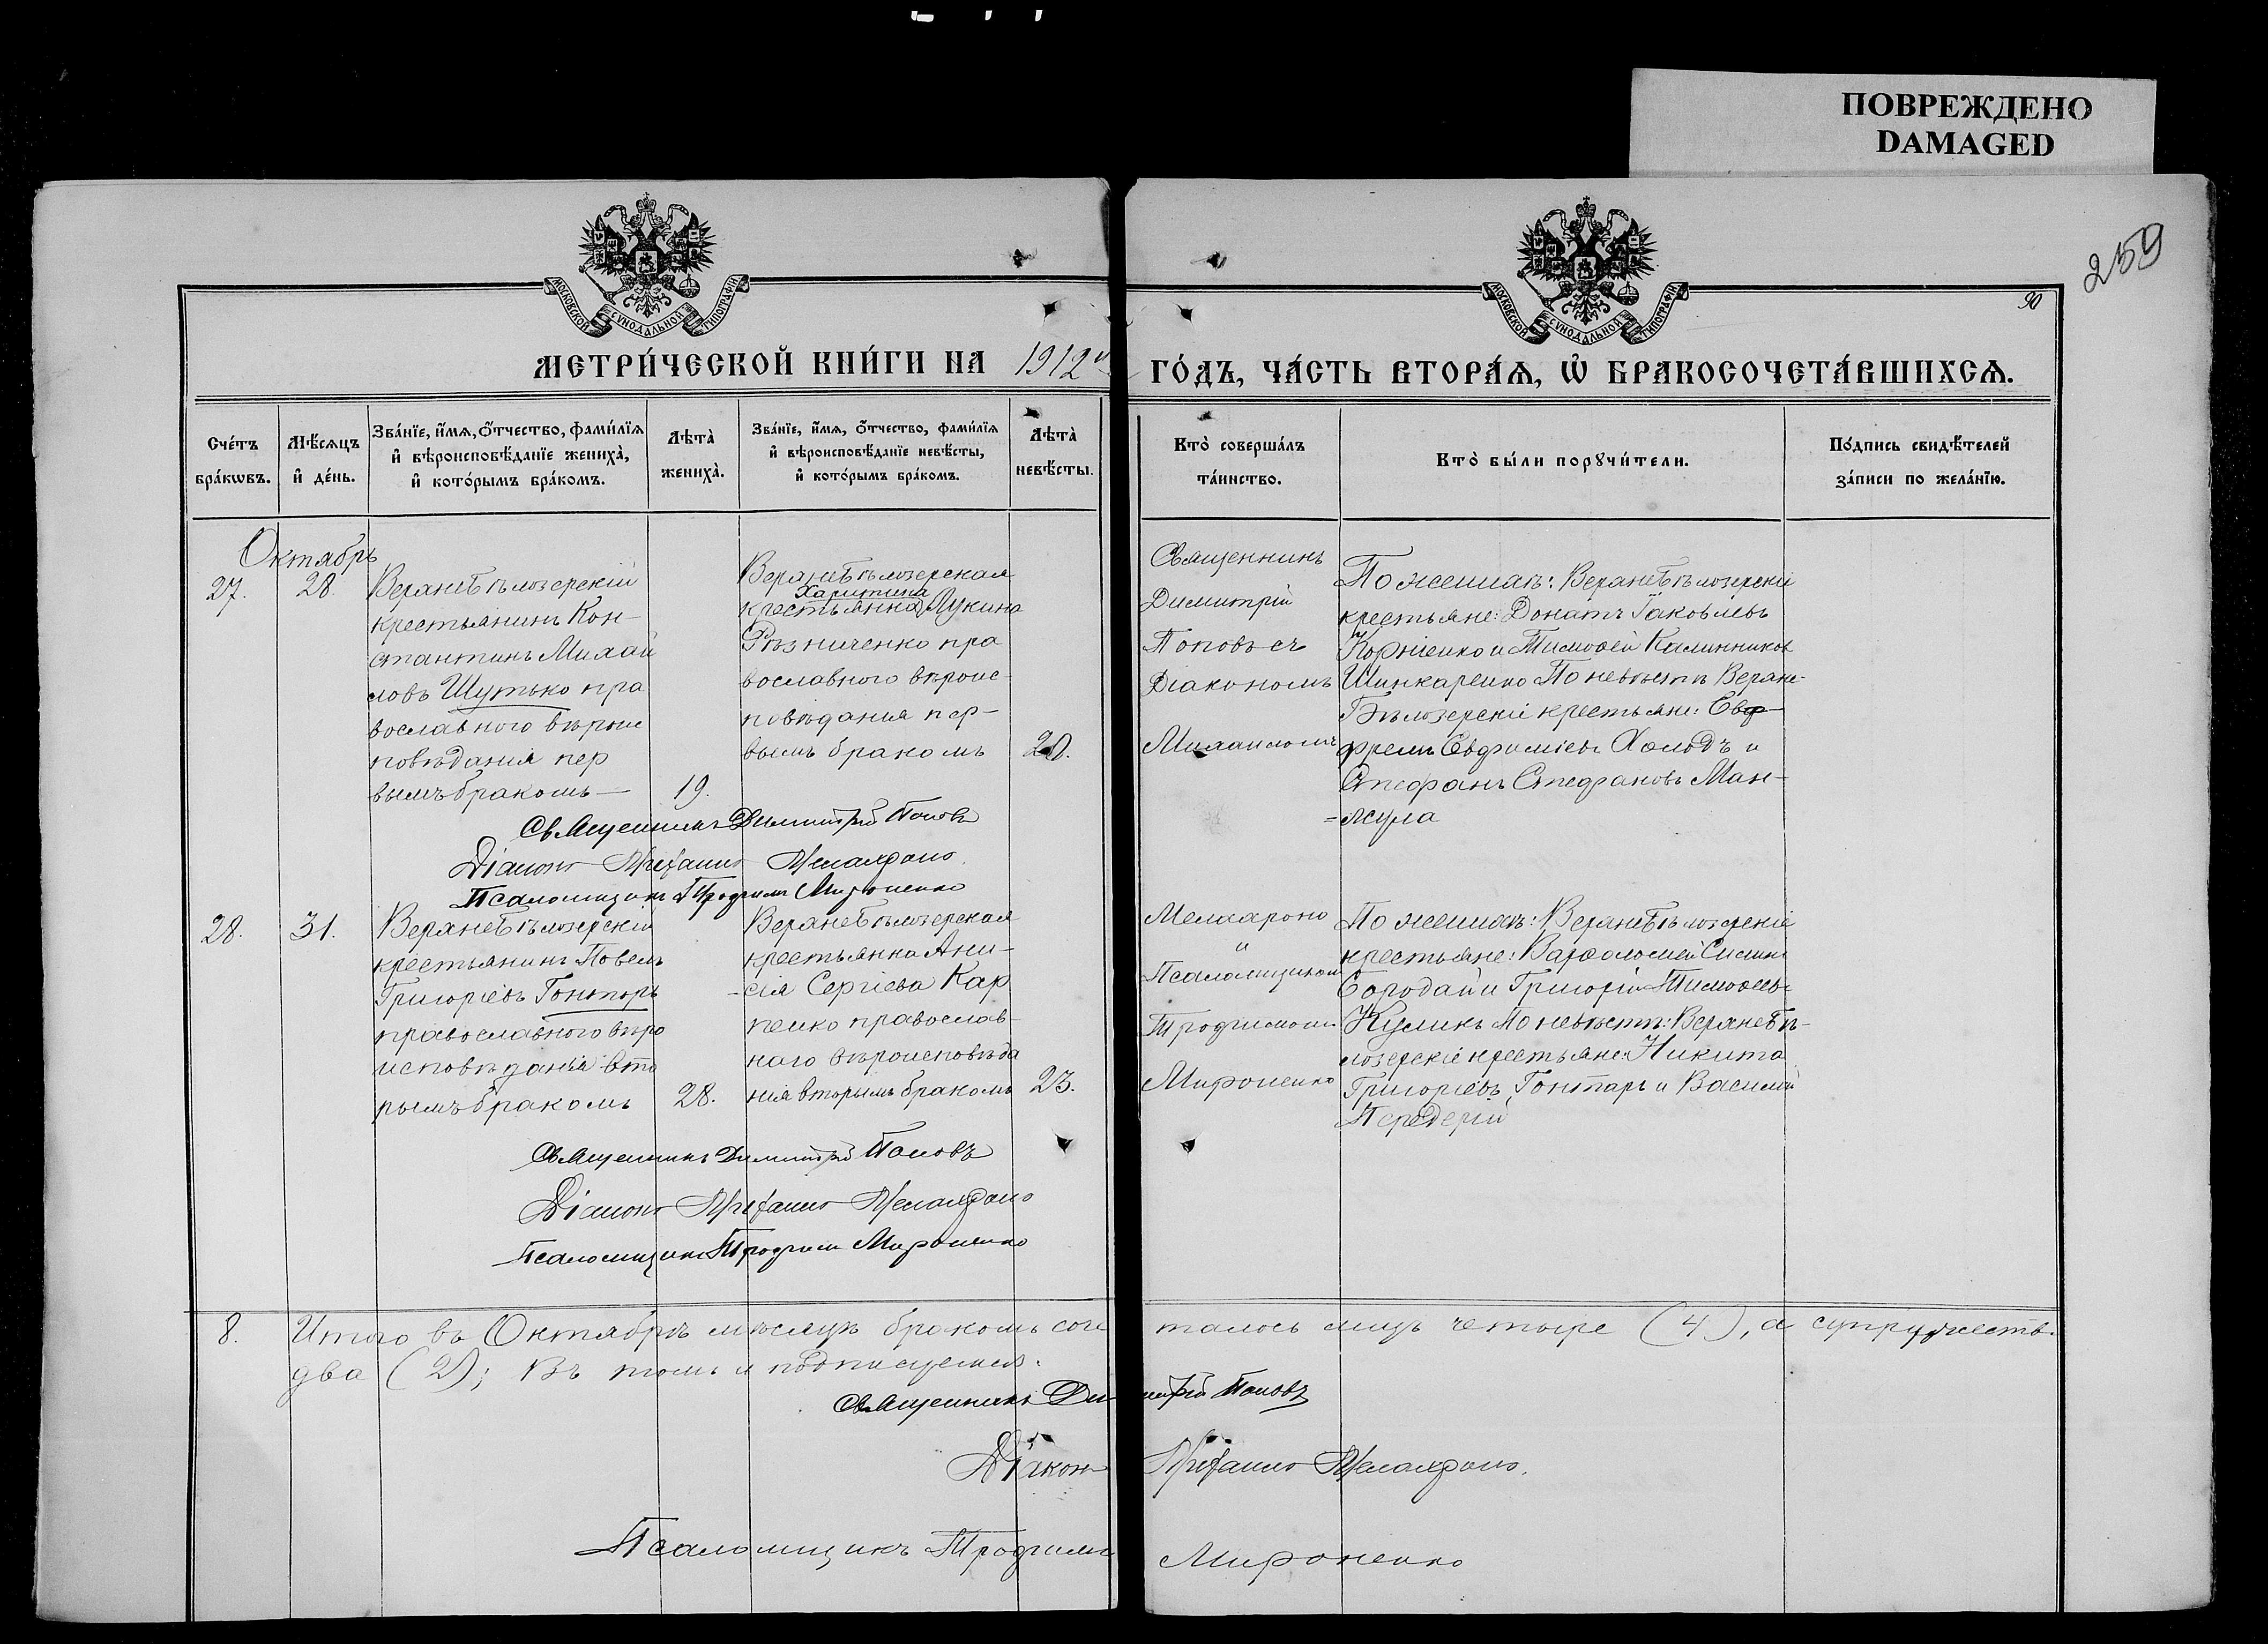 ПОВРЕЖДЕНО
DAMAGED
259
90
МОСКОВСКОЙ СѴНОДАЛЬНОЙ ТИПОГРАФІИ
МОСКОВСКОЙ СѴНОДАЛЬНОЙ ТИПОГРАФІИ
МЕТРИ́ЧЕСКОЙ КНИ́ГИ НА 1912й ГО́ДЪ, ЧА́СТЬ ВТОРА́Ѧ, Ѡ҆ БРАКОСОЧЕТА́ВШИХСѦ.
Сче́тъ бра́кѡвъ.
Мѣ́сяцъ и҆ де́нь.
Зва́нїе, и҆́мѧ, ѻ҆́тчество, фами́лїѧ
и҆ вѣроисповѣ́данїе жениха̀,
и҆ кото́рымъ бра́комъ.
Лѣта̀ жениха̀.
Зва́нїе, и҆́мѧ, ѻ҆́тчество, фами́лїѧ
и҆ вѣроисповѣ́данїе невѣ́сты,
и҆ кото́рымъ бра́комъ.
Лѣта̀ невѣ́сты.
Кто̀ соверша́лъ та́инство.
Кто̀ бы́ли порꙋчи́тели.
По́дпись свидѣ́телей за́писи по жела́нїю.
Октябрь
27.
28.
Верхнебѣлозерскій
крестьянинъ Кон-
стантинъ Михай
ловъ Шутько пра
вославного вѣроис
повѣданія пер
вымъ бракомъ
19.
Верхнебѣлозерская
Харитина
крестьянка Лукина
Рѣзниченко пра
вославного вѣроис-
повѣданія пер-
вымъ бракомъ
20.
Священникъ
Димитрій
Поповъ съ
Діакономъ
Михаиломъ
По женихѣ: Верхнебѣлозерскіе
крестьяне: Донатъ Іаковлевъ
Корніенко и Тимоѳей Калинниковъ
Шинкаренко По невѣстѣ Верхне-
Бѣлозерскіе крестьяне: Евф-
фремъ Евфиміевъ Холодъ и
Стефанъ Стефановъ Ман-
-жула
Священникъ Димитрій Поповъ
Діаконъ Михаилъ
Псаломщикъ Трофимъ Мироненко
28.
31.
Верхнебѣлозерскій
крестьянинъ Павелъ
Григоріевъ Гонтарь
православного вѣро
исповѣданія вто
рымъ бракомъ
28.
Верхнебѣлозерская
крестьянка Ани-
-сія Сергіева Кар
пенко православ-
наго вѣроисповѣда
нія вторымъ бракомъ
23.
и
Псаломщикомъ
Трофимомъ
Мироненко
По женихѣ: Верхнебѣлозерскіе
крестьяне: Варѳоломей
Бородай и Григорій Тимоѳеевъ
Куликъ По невѣстѣ: Верхнебѣ-
лозерскіе крестьяне: Никита
Григоріевъ Гонтарь и Василій
Передерій
Священникъ Димитрій Поповъ
Діаконъ Михаилъ
Псаломщикъ Трофимъ Мироненко
8. Итого въ Октябрѣ мѣсяцѣ бракомъ соче талось лицъ четыре (4), а супружествъ
два (2); Въ томъ и подписуемся.
Священникъ Димитрій Поповъ
Діаконъ Михаилъ
Псаломщикъ Трофимъ Мироненко